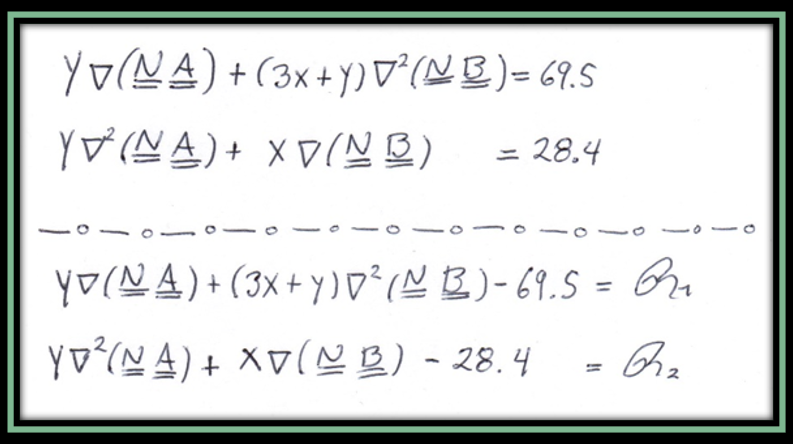 Y∇(N̳ A̳) + (3x+y)∇²(N̳ B̳) = 69.5
Y∇²(N̳ A̳) + X∇(N̳ B̳) = 28.4
Y∇(N̳ A̳) + (3x+y)∇²(N̳ B̳) - 69.5 = R₁
Y∇²(N̳ A̳) + X∇(N̳ B̳) - 28.4 = R₂